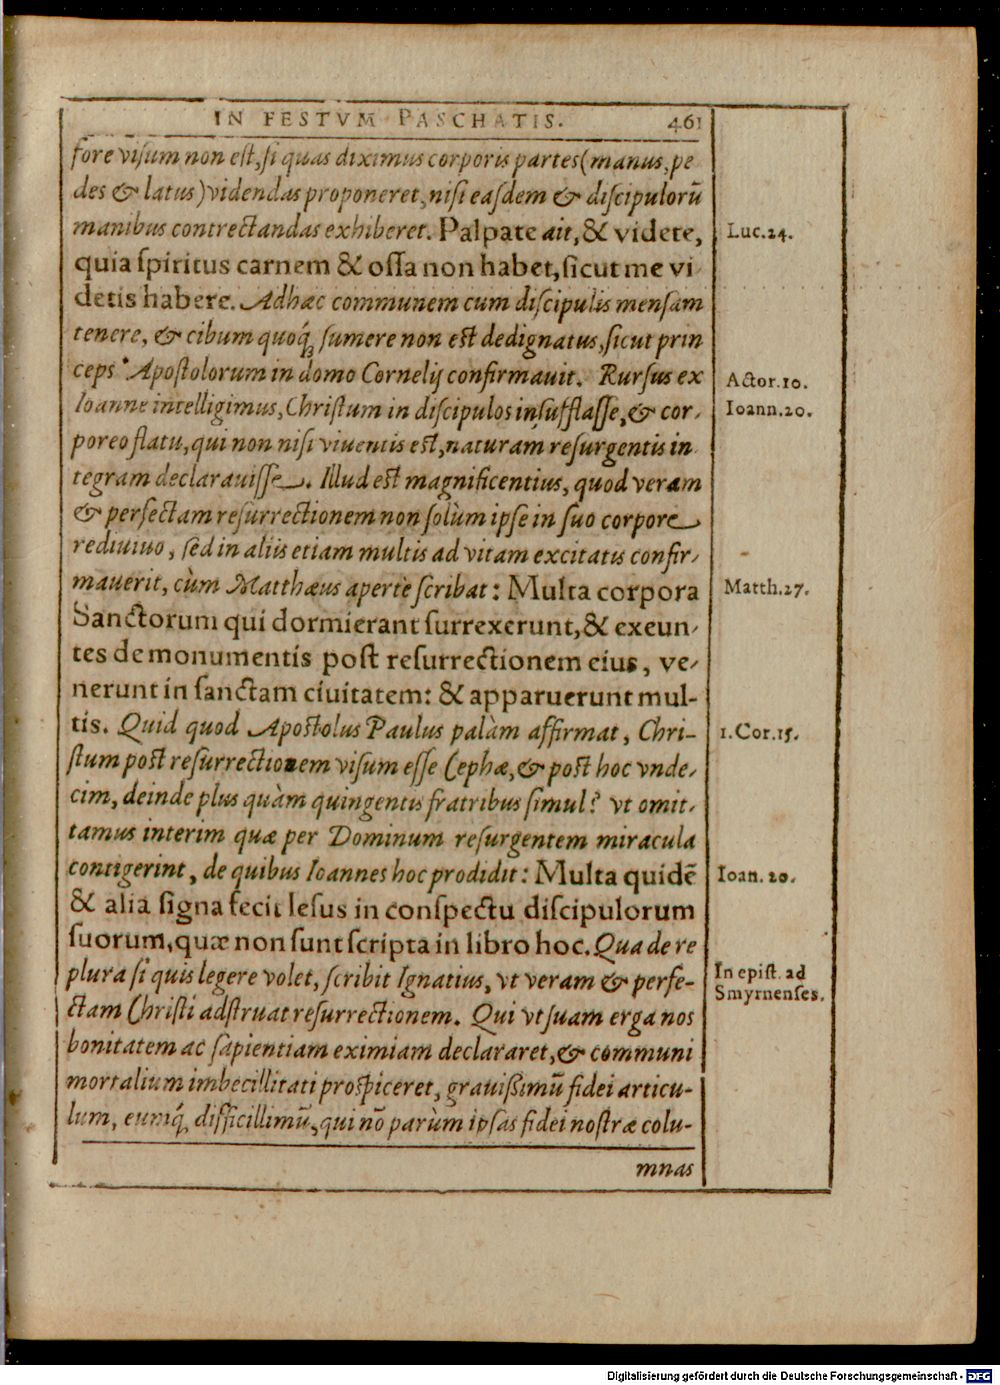 IN FESTVM PASCHATIS. 461
fore visum non est, si quas diximus corporis partes (manus, pe
des & latus) videndas proponeret, nisi easdem & discipulorũ
manibus contrectandas exhiberet. Palpate ait, & videte,
Luc.24.
quia spiritus carnem & ossa non habet, sicut me vi
detis habere. Adhæc communem cum discipulis mensam
tenere, & cibum quoq́; sumere non est dedignatus, sicut prin
ceps Apostolorum in domo Cornelij confirmauit. Rursus ex
Actor.10.
Ioanne intelligimus, Christum in discipulos insufflasse, & cor-
Ioann.20.
poreo flatu, qui non nisi viuentis est, naturam resurgentis in
tegram declarauisse. Illud est magnificentius, quod veram
& perfectam resurrectionem non solùm ipse in suo corpore
rediuiuo, sed in aliis etiam multis ad vitam excitatis confir-
mauerit, cùm Matthæus apertè scribat: Multa corpora
Matth.27.
Sanctorum qui dormierant surrexerunt, & exeun-
tes de monumentis post resurrectionem eius, ve-
nerunt in sanctam ciuitatem: & apparuerunt mul-
tis. Quid quod Apostolus Paulus palàm affirmat, Chri-
1.Cor.15.
stum post resurrectionem visum esse Cephæ, & post hoc vnde-
cim, deinde plus quàm quingentis fratribus simul? vt omit-
tamus interim quæ per Dominum resurgentem miracula
contigerint, de quibus Ioannes hoc prodidit: Multa quidẽ
Ioan.20.
& alia signa fecit Iesus in conspectu discipulorum
suorum, quæ non sunt scripta in libro hoc. Qua de re
plura si quis legere volet, scribit Ignatius, vt veram & perfe-
In epist. ad
Smyrnenses.
ctam Christi adstruat resurrectionem. Qui vt suam erga nos
bonitatem ac sapientiam eximiam declararet, & communi
mortalium imbecillitati prospiceret, grauißimũ fidei articu-
lum, eumq́; difficillimũ, qui nõ parùm ipsas fidei nostræ colu-
mnas
Digitalisierung gefördert durch die Deutsche Forschungsgemeinschaft - DFG